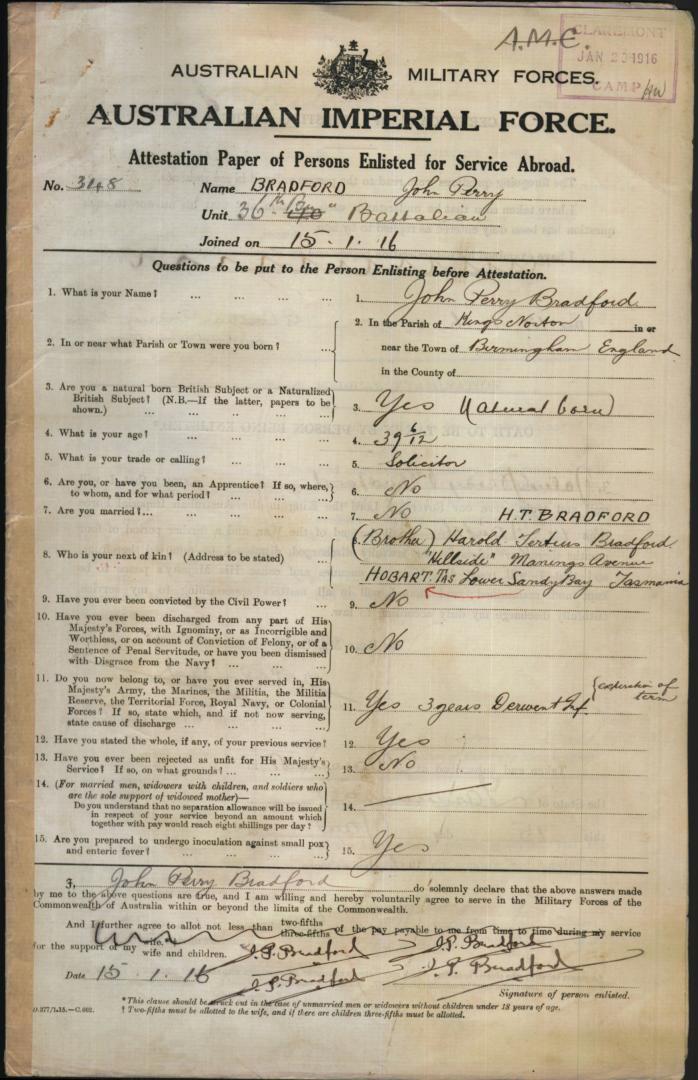 A.M.C.
CLAREMONT
JAN 23 1916
CAMP
AUSTRALIAN MILITARY FORCES.
AUSTRALIAN IMPERIAL FORCE.
Attestation Paper of Persons Enlisted for Service Abroad.
No. 3148 Name BRADFORD John Perry
Unit 36th Bn Battalion
Joined on 15.1.16
Questions to be put to the Person Enlisting before Attestation.
1. What is your Name? ... ... ... ... 1. John Perry Bradford
2. In or near what Parish or Town were you born? ... 2. In the Parish of Kings Norton in or
near the Town of Birmingham England
in the County of
3. Are you a natural born British Subject or a Naturalized
British Subject? (N.B.—If the latter, papers to be
shown.) ... ... ... ... 3. Yes Natural born
4. What is your age? ... ... ... ... 4. 39 6/12
5. What is your trade or calling? ... ... ... 5. Solicitor
6. Are you, or have you been, an Apprentice? If so, where,
to whom, and for what period? ... ... ... 6. No
7. Are you married?... ... ... ... ... 7. No H.T. BRADFORD
8. Who is your next of kin? (Address to be stated) ... 8. (Brother) Harold Tertius Bradford
"Hillside" Manings Avenue
HOBART. TAS Lower Sandy Bay Tasmania
9. Have you ever been convicted by the Civil Power? ... 9. No
10. Have you ever been discharged from any part of His
Majesty's Forces, with Ignominy, or as Incorrigible and
Worthless, or on account of Conviction of Felony, or of a
Sentence of Penal Servitude, or have you been dismissed
with Disgrace from the Navy? ... ... ... 10. No
11. Do you now belong to, or have you ever served in, His
Majesty's Army, the Marines, the Militia, the Militia
Reserve, the Territorial Force, Royal Navy, or Colonial
Forces? If so, state which, and if not now serving,
state cause of discharge ... ... ... 11. Yes 3 years Derwent Inf. (expiration of
term
12. Have you stated the whole, if any, of your previous service? 12. Yes
13. Have you ever been rejected as unfit for His Majesty's
Service? If so, on what grounds? ... ... ... 13. No
14. (For married men, widowers with children, and soldiers who
are the sole support of widowed mother)—
Do you understand that no separation allowance will be issued
in respect of your service beyond an amount which
together with pay would reach eight shillings per day? ... 14.
15. Are you prepared to undergo inoculation against small pox
and enteric fever? ... ... ... ... 15. Yes
I, John Perry Bradford do solemnly declare that the above answers made
by me to the above questions are true, and I am willing and hereby voluntarily agree to serve in the Military Forces of the
Commonwealth of Australia within or beyond the limits of the Commonwealth.
And I further agree to allot not less than two-fifths three-fifths of the pay payable to me from time to time during my service
for the support of my wife. wife and children.
J.P. Bradford J.P. Bradford
Date 15.1.16 J.P. Bradford J.P. Bradford
Signature of person enlisted.
* This clause should be struck out in the case of unmarried men or widowers without children under 18 years of age.
† Two-fifths must be allotted to the wife, and if there are children three-fifths must be allotted.
D.277/1.15.—C.602.